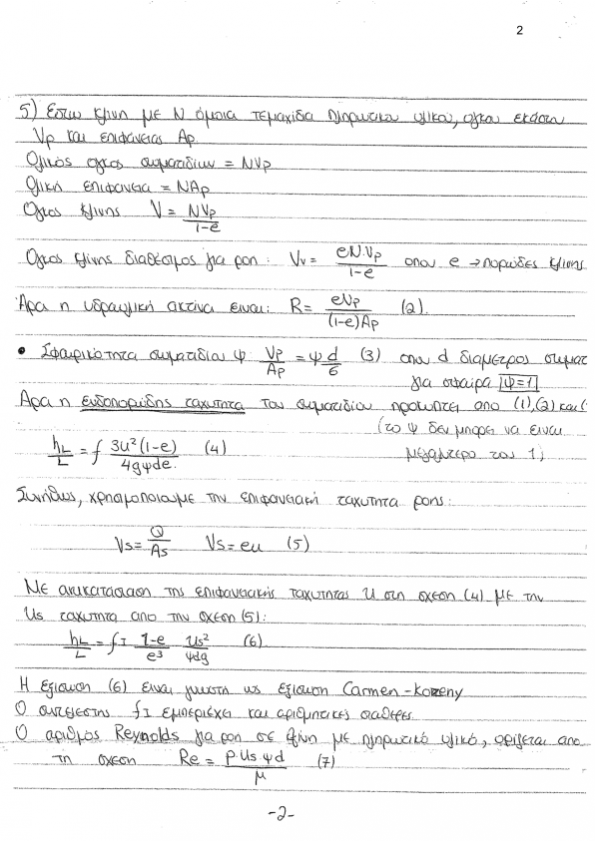 2
5) Εστω κλινη με Ν όμοια τεμαχίδα πληρωτικου υλικου, ογκου εκάστου
Vp και επιφάνειας Ap
Ολικός ογκος σωματιδιων = NVp
Ολική επιφάνεια = NAp
Ογκος κλινης V = NVp / 1-e
Ογκος κλίνης διαθέσιμος για ροη : Vv = eN.Vp / 1-e οπου e → πορώδες κλινης
Άρα η υδραυλική ακτίνα ειναι: R = eVp / (1-e)Ap (2).
• Σφαιρικότητα σωματιδιου ψ: Vp / Ap = ψ d / 6 (3) οπου d διαμετρος σωματ
για σφαιρα |ψ=1|
Άρα η ενδοπορώδης ταχυτητα του σωματιδιου προκυπτει απο (1),(2) και (
(το ψ δεν μπορει να ειναι
hL / L = f 3u²(1-e) / 4gψde. (4) μεγαλυτερο του 1)
Συνήθως, χρησιμοποιουμε την επιφανειακή ταχυτητα ροης:
Vs = Q / As Vs = eu (5)
Με αντικατάσταση της επιφανειακής ταχυτητας u στη σχεση (4) με την
Us ταχυτητα απο την σχεση (5):
hL / L = fI 1-e / e³ Us² / ψdg (6)
Η εξίσωση (6) ειναι γνωστη ως εξίσωση Carmen-kozeny
Ο συντελεστης fI εμπεριέχει και αριθμητικες σταθερες
Ο αριθμος Reynolds για ροη σε κλινη με πληρωτικό υλικό, οριζεται απο
τη σχεση Re = ρ Us ψ d / μ (7)
-2-